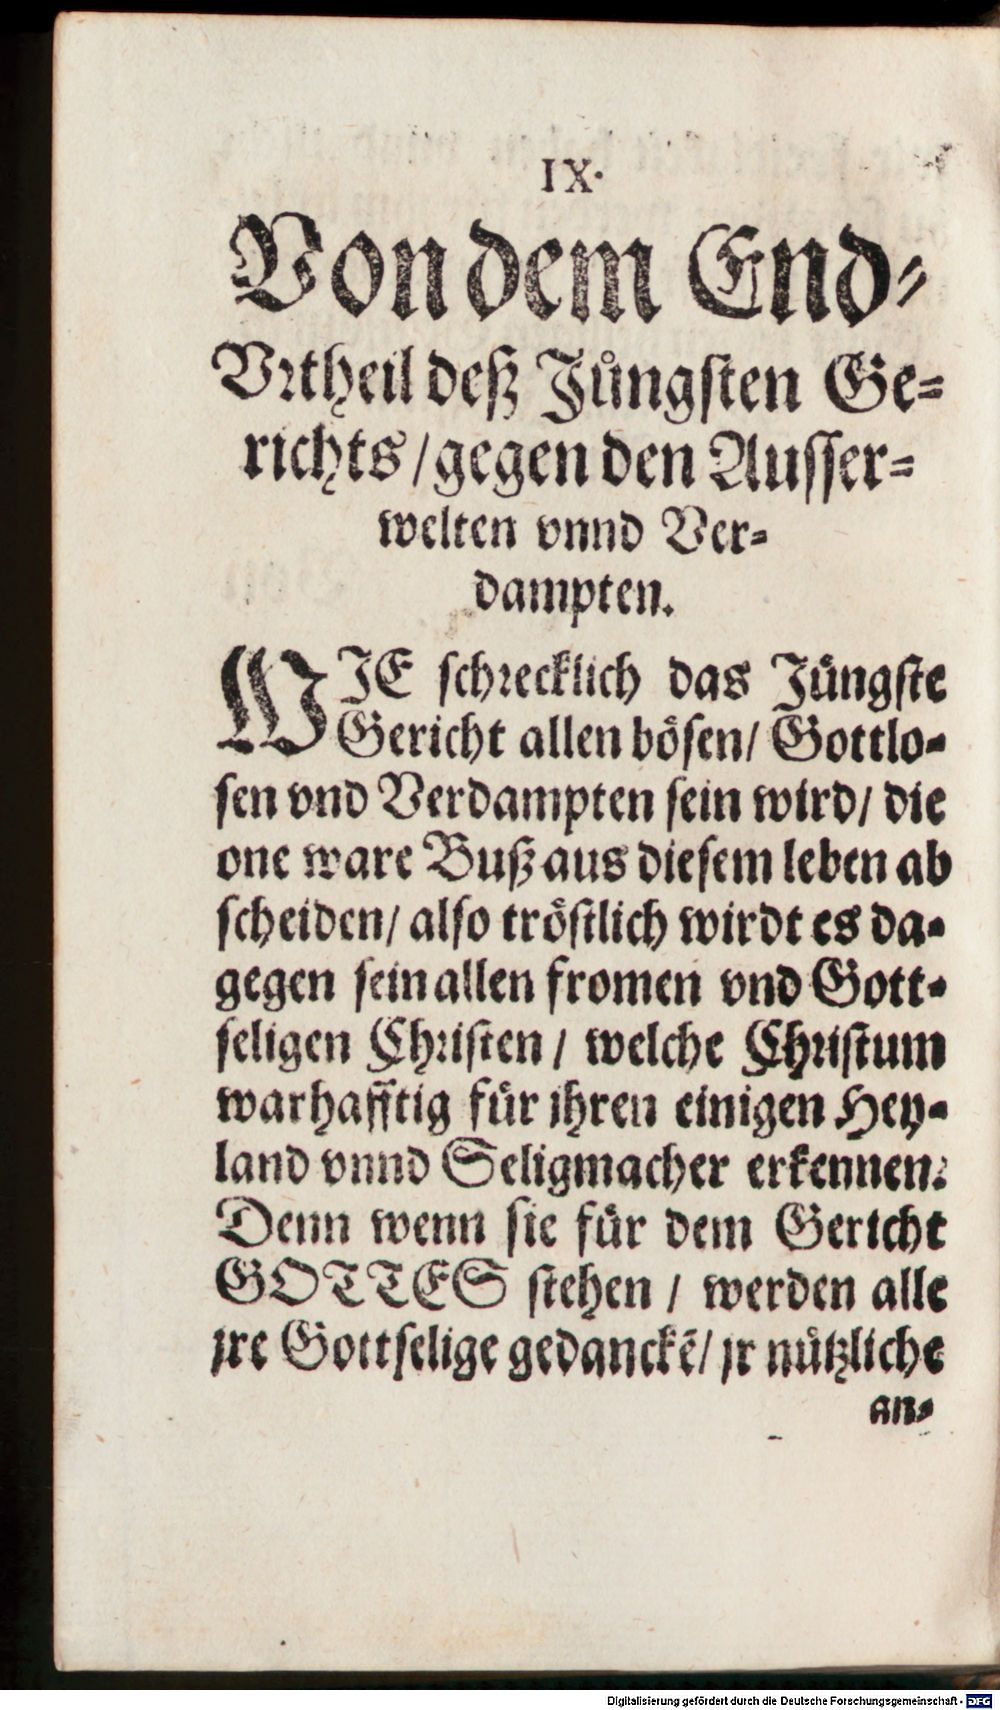 IX.
Von dem End-
Vrtheil deß Jüngsten Ge-
richts / gegen den Ausser-
welten vnnd Ver-
dampten.
WJE schrecklich das Jüngste
Gericht allen bösen / Gottlo-
sen vnd Verdampten sein wird / die
one ware Buß aus diesem leben ab
scheiden / also tröstlich wirdt es da-
gegen sein allen fromen vnd Gott-
seligen Christen / welche Christum
warhafftig für jhren einigen Hey-
land vnnd Seligmacher erkennen:
Denn wenn sie für dem Gericht
GOTTES stehen / werden alle
jre Gottselige gedanckē / jr nützliche
an-
Digitalisierung gefördert durch die Deutsche Forschungsgemeinschaft - DFG